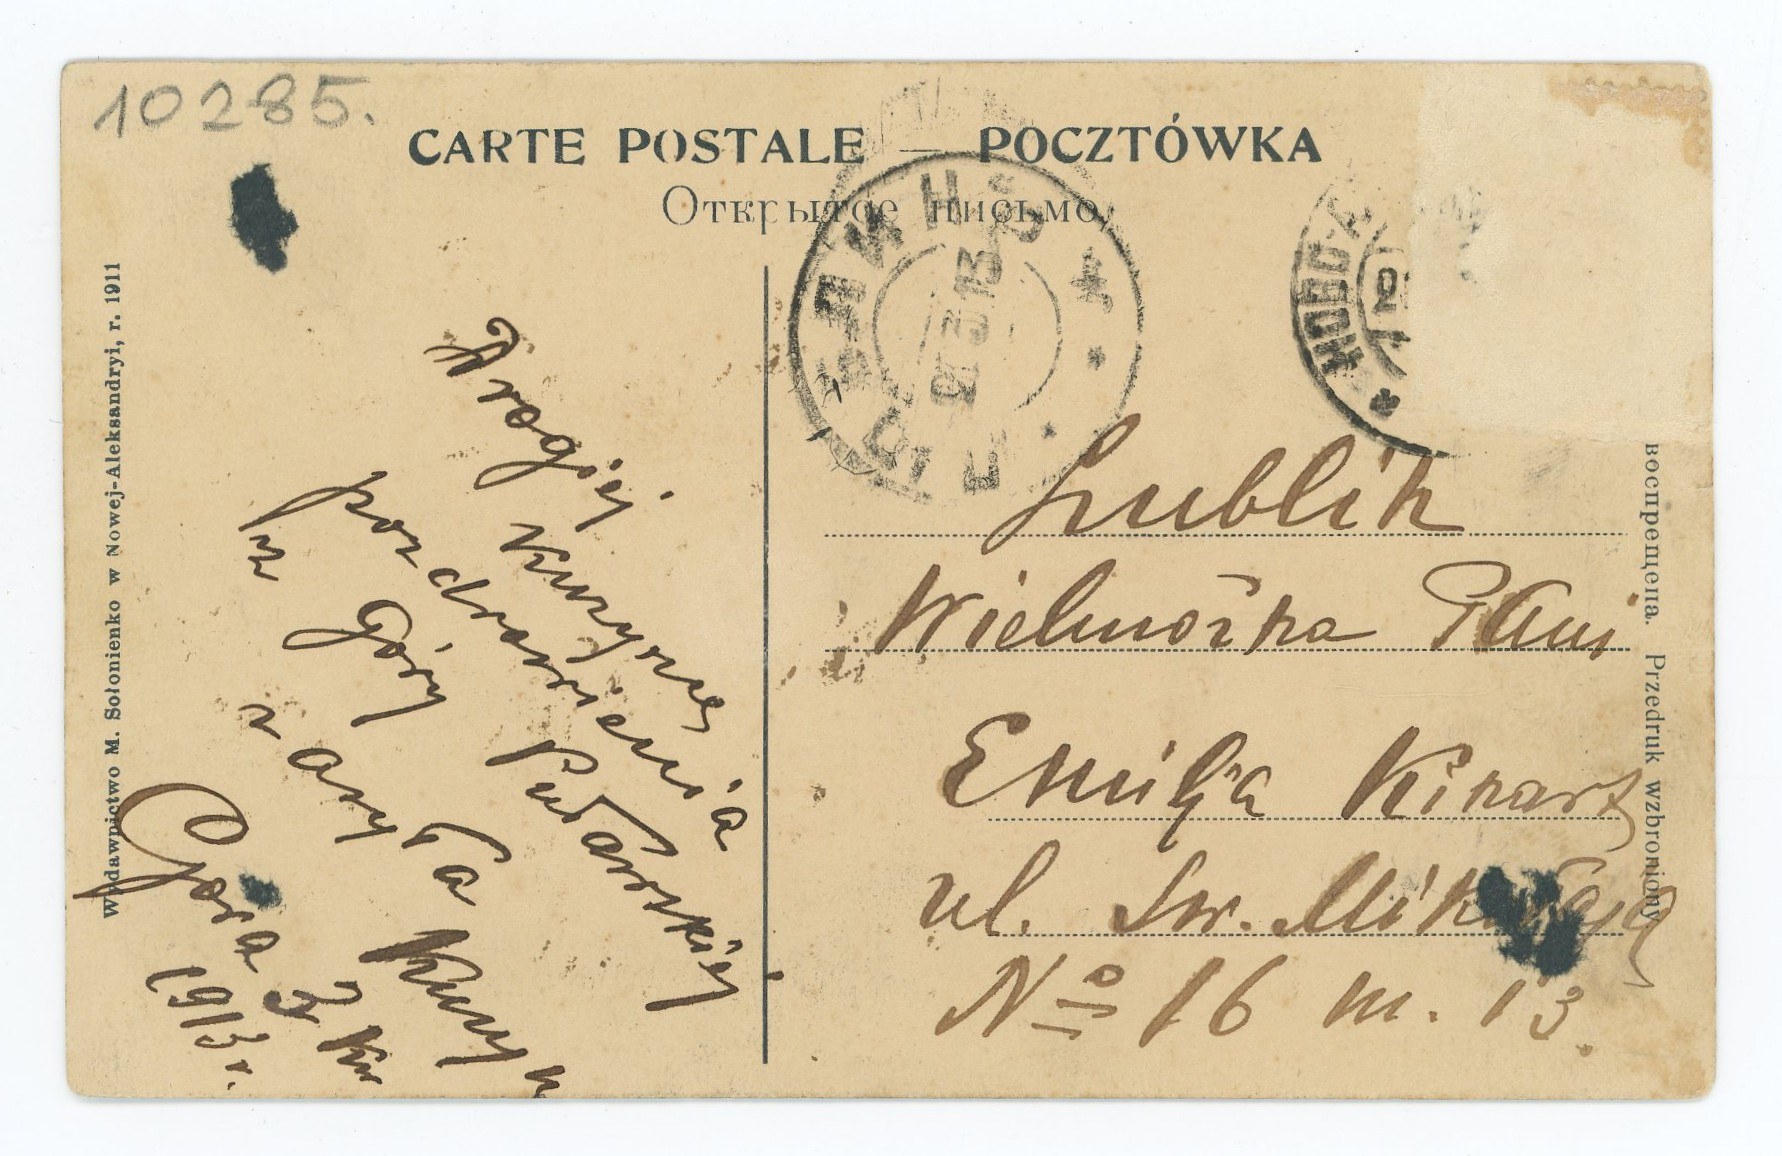 10285.
CARTE POSTALE — POCZTÓWKA
Открытое письмо
Wydawnictwo M. Sołonienko w Nowej-Aleksandryi, r. 1911
Drogiej Kuzynce
pozdrowienia
z Góry Puławskiej
zasyła Kuzyn
Góra 3 Kw
1913 r.
ЛЮБЛИНЪ
2 3 13
НОВО-А
Lublin
Wielmożna Pani
Emilja
ul. Sw. Mikołaja
No 16 m. 13.
воспрещена. Przedruk wzbroniony